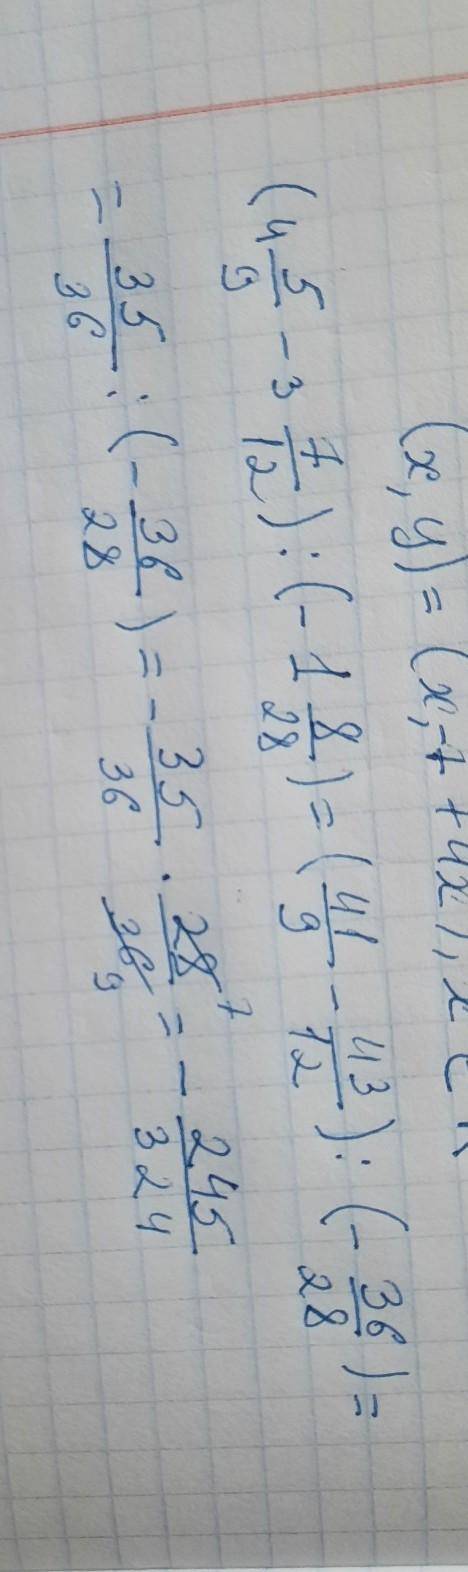 (x, y) = (x, -7 + 4x), x ∈
(4 5/9 - 3 7/12) : (-1 8/28) = (41/9 - 43/12) : (-36/28) =
= 35/36 : (-36/28) = - 35/36 · 28 7/36 9 = - 245/324